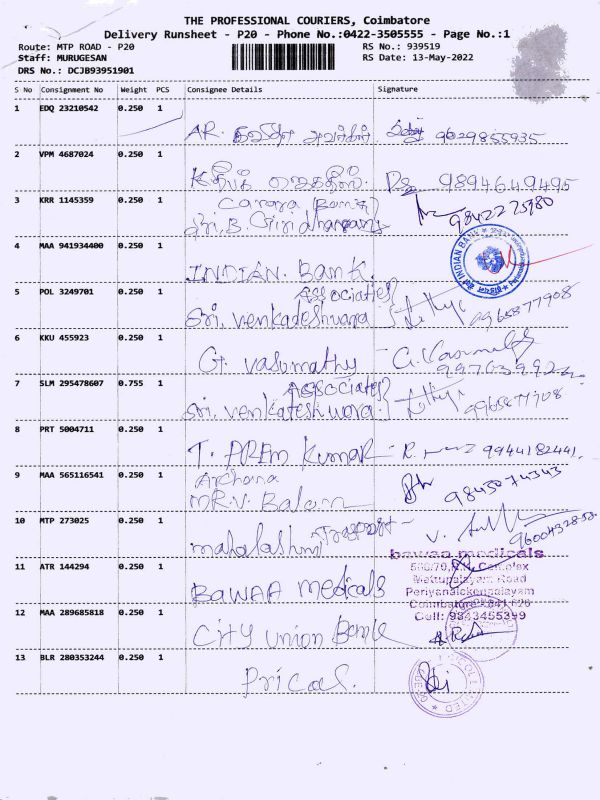 THE PROFESSIONAL COURIERS, Coimbatore
Delivery Runsheet - P20 - Phone No.:0422-3505555 - Page No.:1
Route: MTP ROAD - P20
RS No.: 939519
Staff: MURUGESAN
RS Date: 13-May-2022
DRS No.: DCJB93951901
S No Consignment No Weight PCS Consignee Details Signature
1 EDQ 23210542 0.250 1
AR. 9629855935
2 VPM 4687024 0.250 1
9894649495
3 KRR 1145359 0.250 1
Canara (Bank)
Sri. B. Giridharan 9842275380
4 MAA 941934400 0.250 1
INDIAN BANK
INDIAN. Bank.
5 POL 3249701 0.250 1
Associaties
Sri. venkadeshwara 9965877908
6 KKU 455923 0.250 1
G. vasumathy G. Vasumathy
7 SLM 295478607 0.755 1
Associates
Sri. venkateshwara 9965877908
8 PRT 5004711 0.250 1
T. PREM Kumar 9944182441
9 MAA 565116541 0.250 1
Archana
MR.V. Balan 9843074343
10 MTP 273025 0.250 1
mahalashmi 9600432853
11 ATR 144294 0.250 1
BAWAA medicals
bawaa medicals
Mettupalayam Road
Periyanaickenpalayam
Coimbatore-641 020
Cell: 9843455399
12 MAA 289685818 0.250 1
City union Bank
13 BLR 280353244 0.250 1
Pricol.